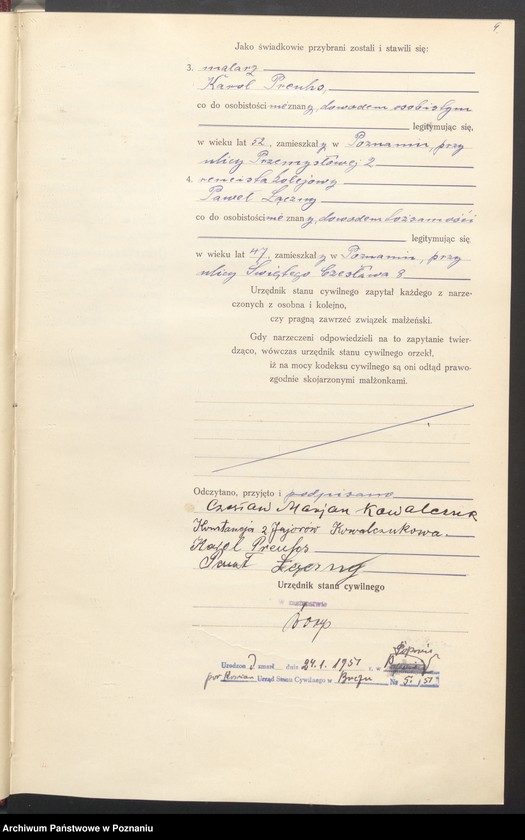 9
Jako świadkowie przybrani zostali i stawili się:
3. malarz
Karol Preuhs,
co do osobistości nieznany, dowodem osobistym
legitymując się,
w wieku lat 52, zamieszkały w Poznaniu, przy
ulicy Przemysłowej 2
4. kolejowy
Paweł Łączny
co do osobistości nieznany, dowodem tożsamości
legitymując się
w wieku lat 47, zamieszkały w Poznaniu, przy
ulicy Świętego Czesława 8
Urzędnik stanu cywilnego zapytał każdego z narze-
czonych z osobna i kolejno,
czy pragną zawrzeć związek małżeński.
Gdy narzeczeni odpowiedzieli na to zapytanie twier-
dząco, wówczas urzędnik stanu cywilnego orzekł,
iż na mocy kodeksu cywilnego są oni odtąd prawo-
zgodnie skojarzonymi małżonkami.
Odczytano, przyjęto i podpisano
Czesław Marjan Kowalczuk
Konstancja z Jajorów Kowalczukowa.
Karol Preuhs
Paweł Łączny
Urzędnik stanu cywilnego
w zastępstwie
Urodzon zmarł dnia 24.1. 1951 r. w
pow. Urząd Stanu Cywilnego w Nr 5/51
Archiwum Państwowe w Poznaniu